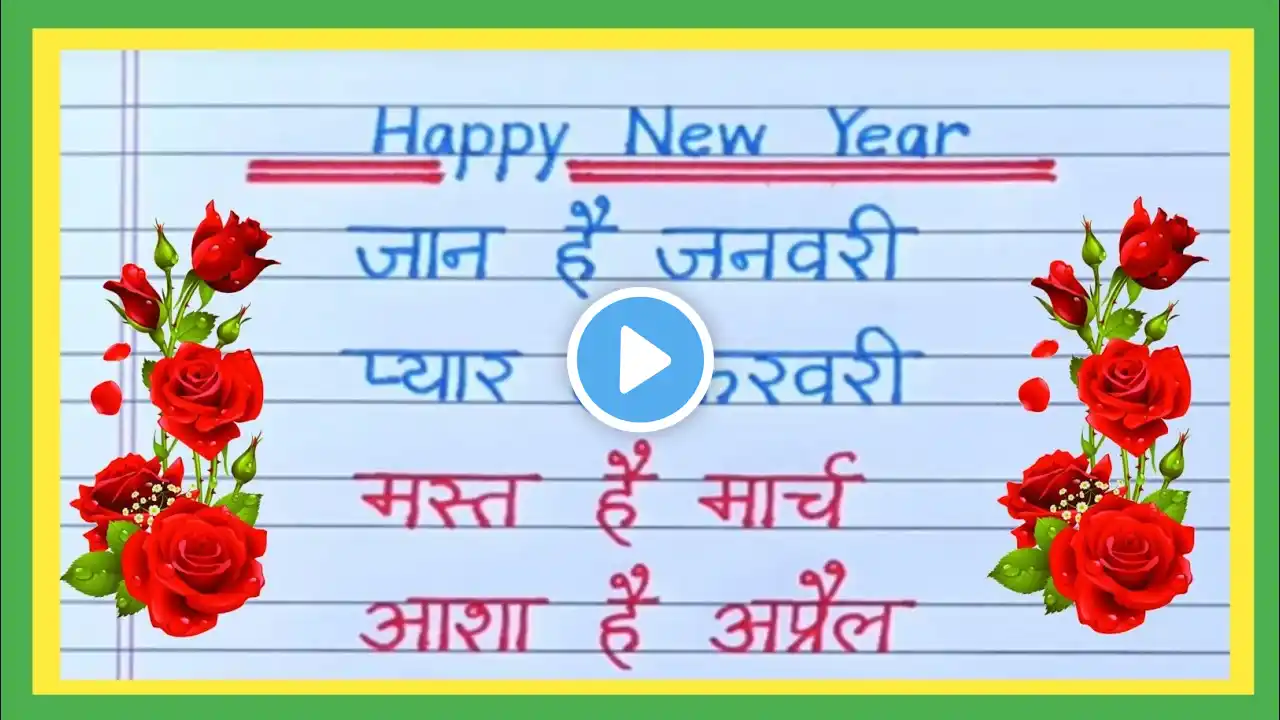 Happy New Year
जान है जनवरी
प्यार
मस्त है मार्च
आशा है अप्रैल